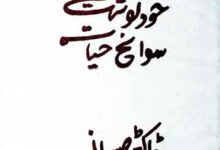 خودنوشت
سوانح حیات
ڈاکٹر